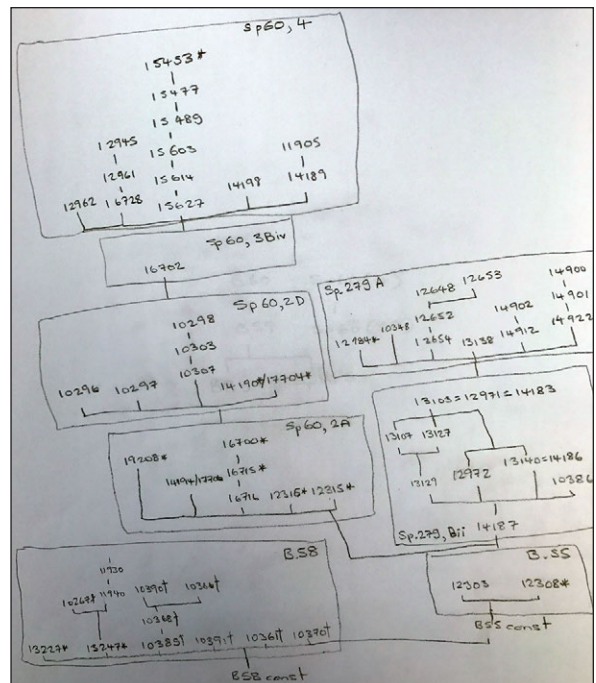 Sp60, 4
15453*
15477
15489
12945 15603 11905
12961 15614
12962 16728 15627 14198 14189
Sp60, 3Biv
16702
Sp60,2D
10298
10303
10307
10296 10297 14190*/17704*
Sp.279A
12648 12653 14900
12652 14902 14901
12784* 10348 12654 13138 14912 14922
13103=12971=14183
13107 13127
13129 12972 13140=14186
10386
Sp.279, Bii 14187
Sp60, 2A
19208* 16700*
16715*
16716 12315* 12315*
B.S8
11930
10267* 11940 10390† 10366†
10368†
13227* 15247* 10385† 10391† 10361† 10370†
BS8 const
B.S5
12303 12308*
BS5 const